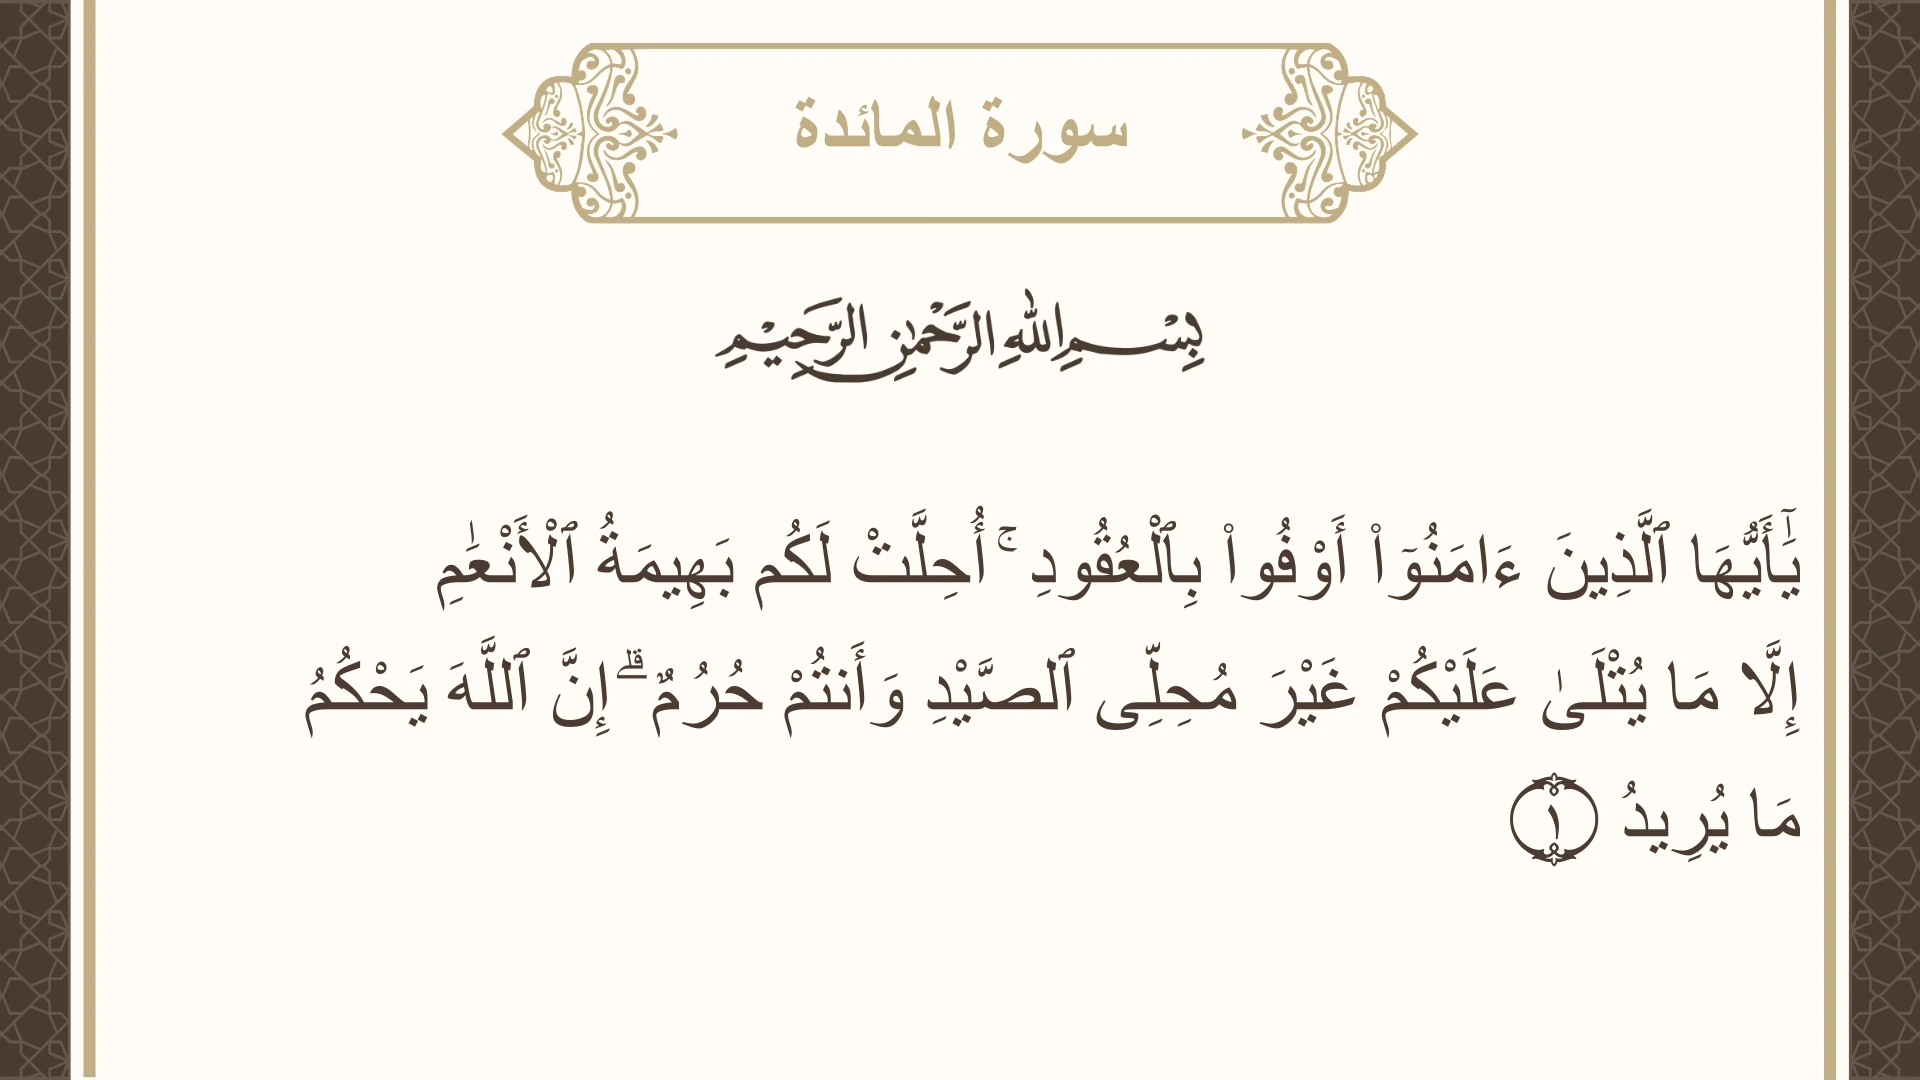 سورة المائدة
بِسْمِ اللهِ الرَّحْمٰنِ الرَّحِيْمِ
يَٰٓأَيُّهَا ٱلَّذِينَ ءَامَنُوٓا۟ أَوْفُوا۟ بِٱلْعُقُودِ ۚ أُحِلَّتْ لَكُم بَهِيمَةُ ٱلْأَنْعَٰمِ
إِلَّا مَا يُتْلَىٰ عَلَيْكُمْ غَيْرَ مُحِلِّى ٱلصَّيْدِ وَأَنتُمْ حُرُمٌ ۗ إِنَّ ٱللَّهَ يَحْكُمُ
مَا يُرِيدُ ۝١